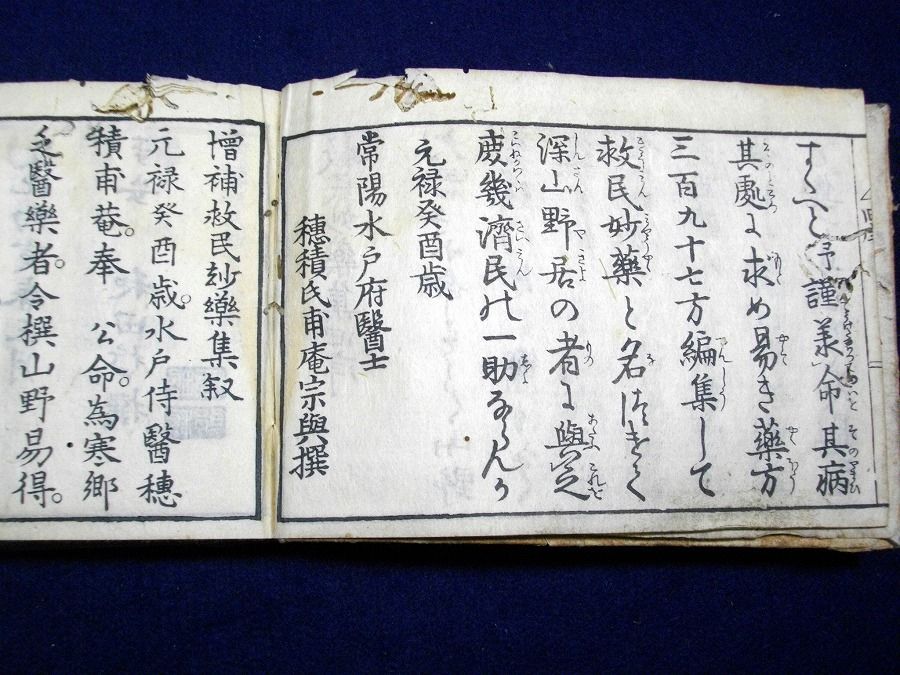 すへと予謹承命其病
其處に求め易き藥方
三百九十七方編集して
救民妙藥と名つけて
深山野居の者に與之
庶幾濟民の一助ならんか
元禄癸酉歳
常陽水戸府醫士
穗積氏甫庵宗與撰
増補救民玅藥集叙
元禄癸酉歳。水戸侍醫穗
積甫菴。奉 公命。為寒郷
乏醫藥者。令撰山野易得。